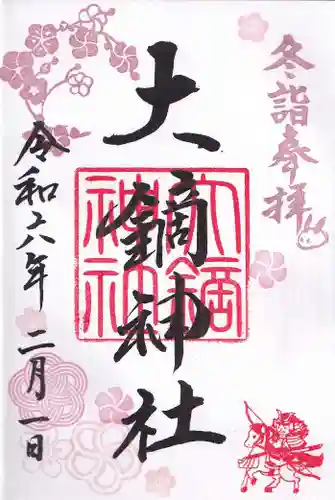 冬詣奉拝
大鏑神社
大鏑神社
令和六年二月一日